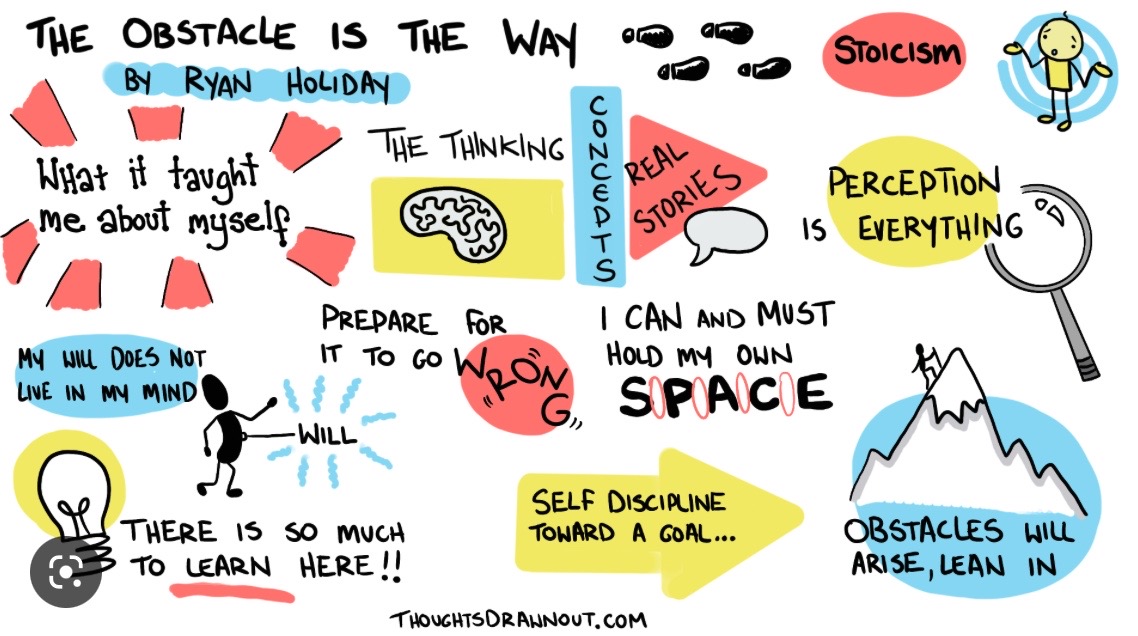 THE OBSTACLE IS THE WAY
BY RYAN HOLIDAY
STOICISM
What it taught
me about myself
THE THINKING
CONCEPTS
REAL
STORIES
PERCEPTION
IS EVERYTHING
MY WILL DOES NOT
LIVE IN MY MIND
WILL
PREPARE FOR
IT TO GO WRONG
I CAN AND MUST
HOLD MY OWN
SPACE
THERE IS SO MUCH
TO LEARN HERE!!
SELF DISCIPLINE
TOWARD A GOAL...
OBSTACLES WILL
ARISE, LEAN IN
THOUGHTSDRAWNOUT.COM